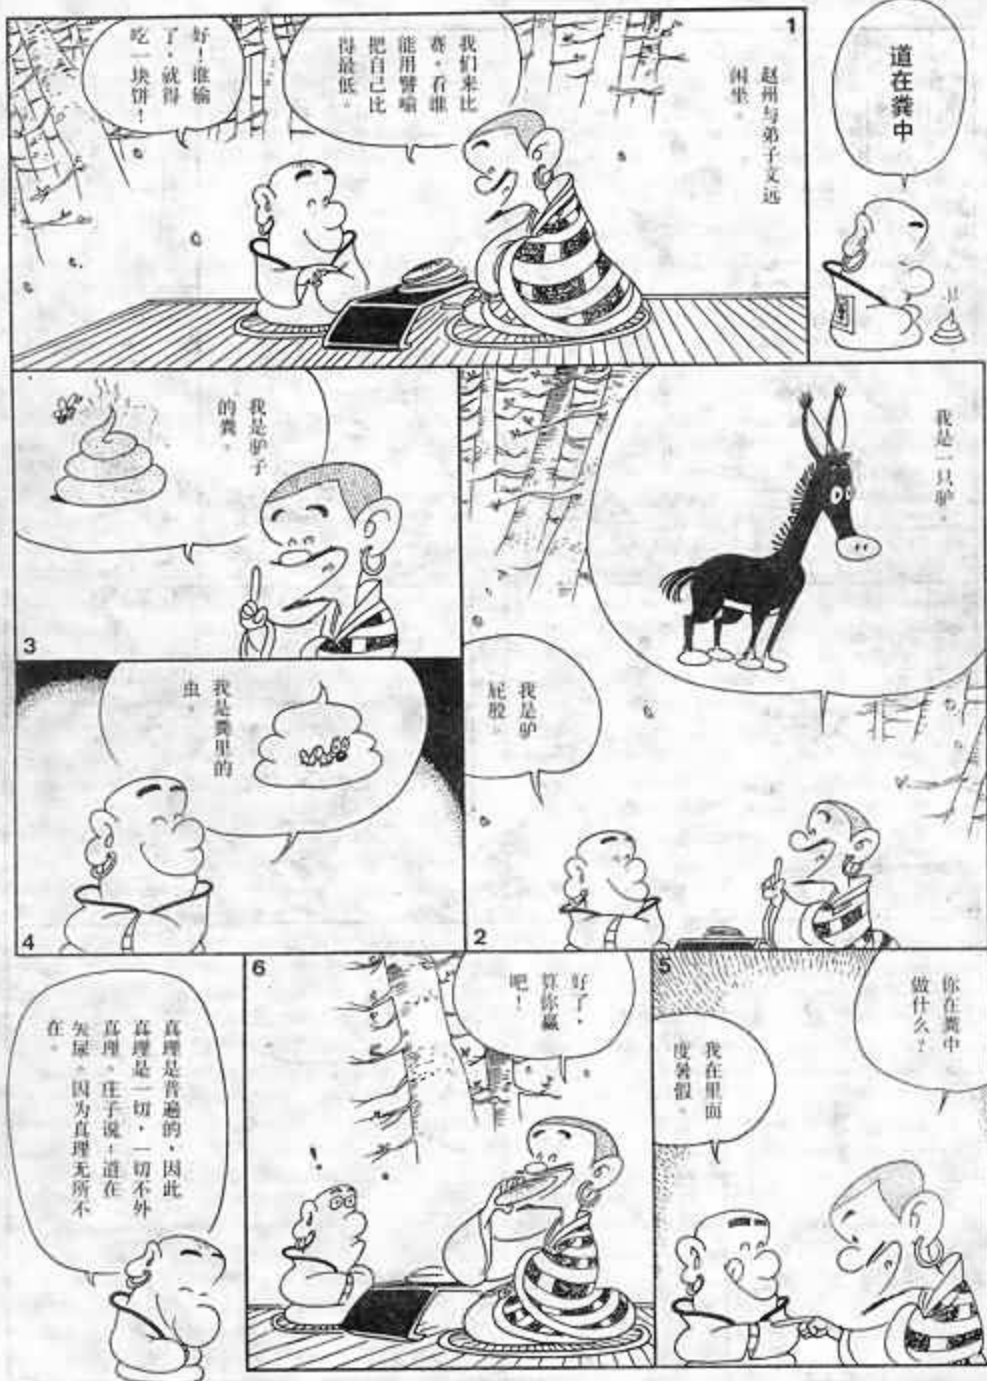 道在粪中
1
赵州与弟子文远
闲坐。
我们来比
赛，看谁
能用譬喻
把自己比
得最低。
好！谁输
了，就得
吃一块饼！
我是一只驴。
我是驴
屁股。
2
我是驴子
的粪。
3
我是粪里的
虫。
4
5
你在粪中
做什么？
我在里面
度暑假。
6
好了，
算你赢
吧！
！
真理是普遍的，因此
真理是一切，一切不外
真理。庄子说：道在
矢尿。因为真理无所不
在。